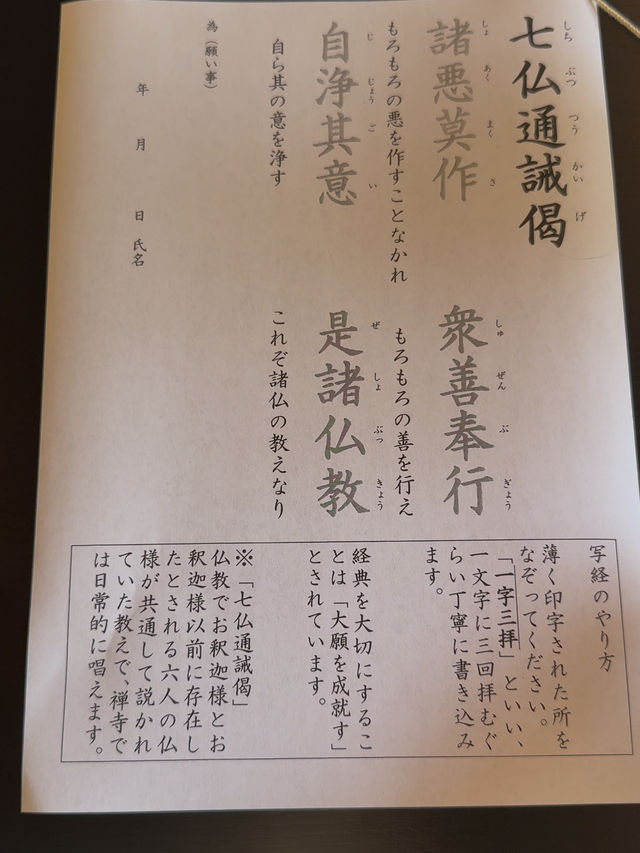 七仏通誡偈
しち ぶつ つう かい げ
諸悪莫作
しょ あく まく さ
もろもろの悪を作すことなかれ
衆善奉行
しゅ ぜん ぶ ぎょう
もろもろの善を行え
自浄其意
じ じょう ご い
自ら其の意を浄す
是諸仏教
ぜ しょ ぶっ きょう
これぞ諸仏の教えなり
為(願い事)
年 月 日 氏名
写経のやり方
薄く印字された所を
なぞってください。
「一字三拝」といい、
一文字に三回拝むぐ
らい丁寧に書き込み
ます。
経典を大切にするこ
とは「大願を成就す」
とされています。
※「七仏通誡偈」
仏教でお釈迦様とお
釈迦様以前に存在し
たとされる六人の仏
様が共通して説かれ
ていた教えで、禅寺で
は日常的に唱えます。